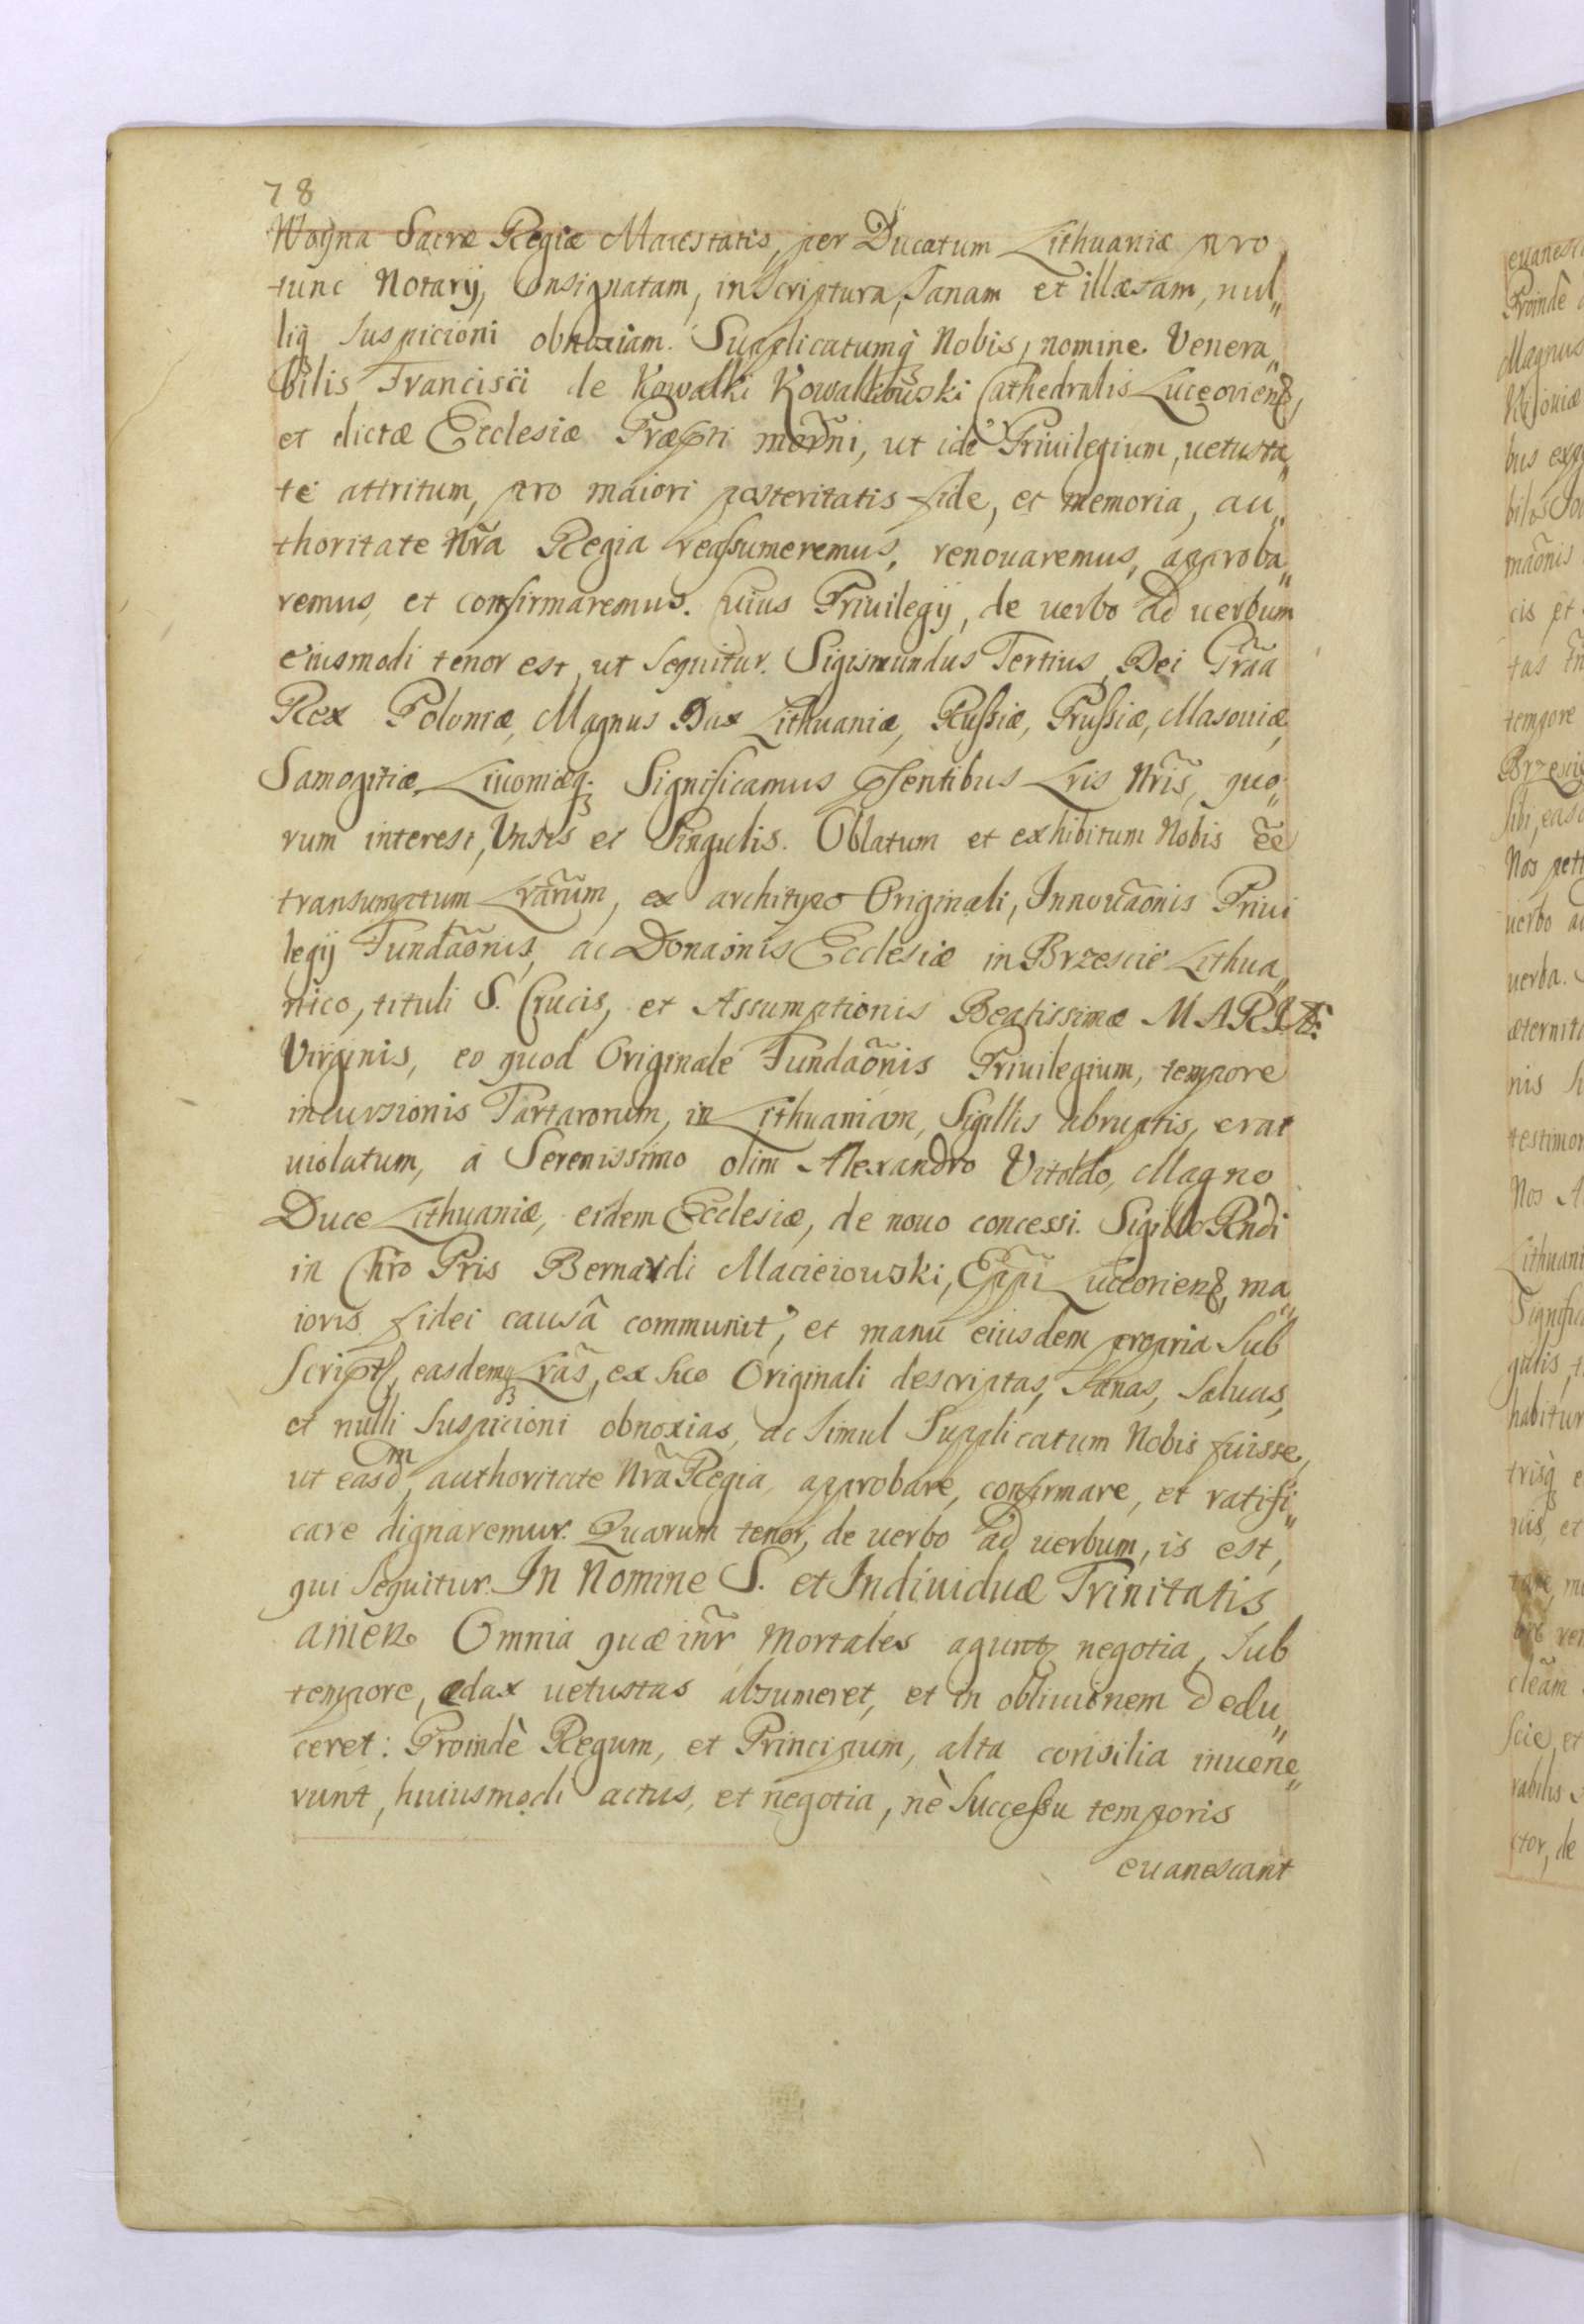 78
Woyna Sacræ Regiæ Maiestatis, per Ducatum Lithuaniæ pro
tunc Notarij, Consignatam, in Scriptura, Sanam et illæsam, nul„
liq Suspicioni obnoxiam. Supplicatumq Nobis, nomine Venera„
bilis Francisci de Kowalki Kowalkowski Cathedralis Luceorien,
et dictæ Ecclesiæ Præpti mod̃ni, ut idẽ Priuilegium, uetusta„
te attritum, pro maiori posteritatis fide, et memoria, au„
thoritate Nr̃a Regia reassumeremus, renouaremus, approba„
remus, et confirmaremus. Cuius Priuilegij, de uerbo ad uerbum
eiusmodi tenor est, ut Sequitur. Sigismundus Tertius, Dei Grãa
Rex Poloniæ, Magnus Dux Lithuaniæ, Rußiæ, Prußiæ, Masouiæ,
Samogitiæ, Liuoniæq; Significamus pñtibus Lris Nr̃is, quo„
rum interest, Vnsis et Singulis. Oblatum et exhibitum Nobis ẽe
transumptum Lrãrum, ex archityo Originali, Innouãonis Priui
legij Fundãonis, ac Donaonis Ecclesiæ in Brzescie Lithua„
nico, tituli S. Crucis, et Assumptionis Beatissimæ MARIÆ
Virginis, eo quod Originale Fundãonis Priuilegium, tempore
incursionis Tartarorum, in Lithuaniam, Sigillis abruptis, erat
uiolatum, á Serenissimo olim Alexandro Vitoldo, Magno
Duce Lithuaniæ, eidem Ecclesiæ, de nouo concessi. Sigillo Rndi
in Chro Pris Bernardi Macieiouski, Epp̃i Luceorien, ma„
ioris fidei causâ communit, et manu eiusdem propria Sub
script, easdemq Lrãs, ex Suo Originali descriptas, Sanas, Saluas,
et nulli Suspicioni obnoxias, ac Simul Supplicatum Nobis fuisse,
ut easdm, authoritate Nr̃a Regia, approbare, confirmare, et ratifi„
care dignaremur. Quarum tenor, de uerbo ad uerbum, is est,
qui Sequitur. In Nomine S. et Indiuiduæ Trinitatis
amen. Omnia quæ int̃r mortales agunt negotia, Sub
tempore, edax uetustas absumeret, et in obliuionem dedu„
ceret: Proindè Regum, et Principum, alta consilia inuene„
runt, huiusmodi actus, et negotia, nè Succeßu temporis
euanescant